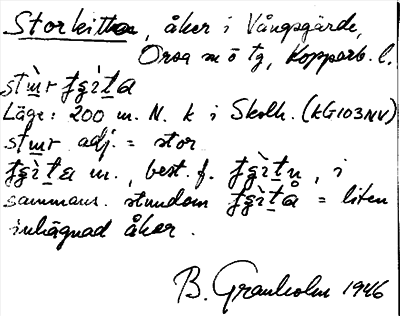 Storkitta, åker i Vångsgärde,
Orsa m ö tg, Kopparb. l.
Läge: 200 m. N. k i Skolh. (KG103NV)
adj. = stor
m., best. f. , i
sammans. stundom = liten
inhägnad åker.
B. Granholm 1946